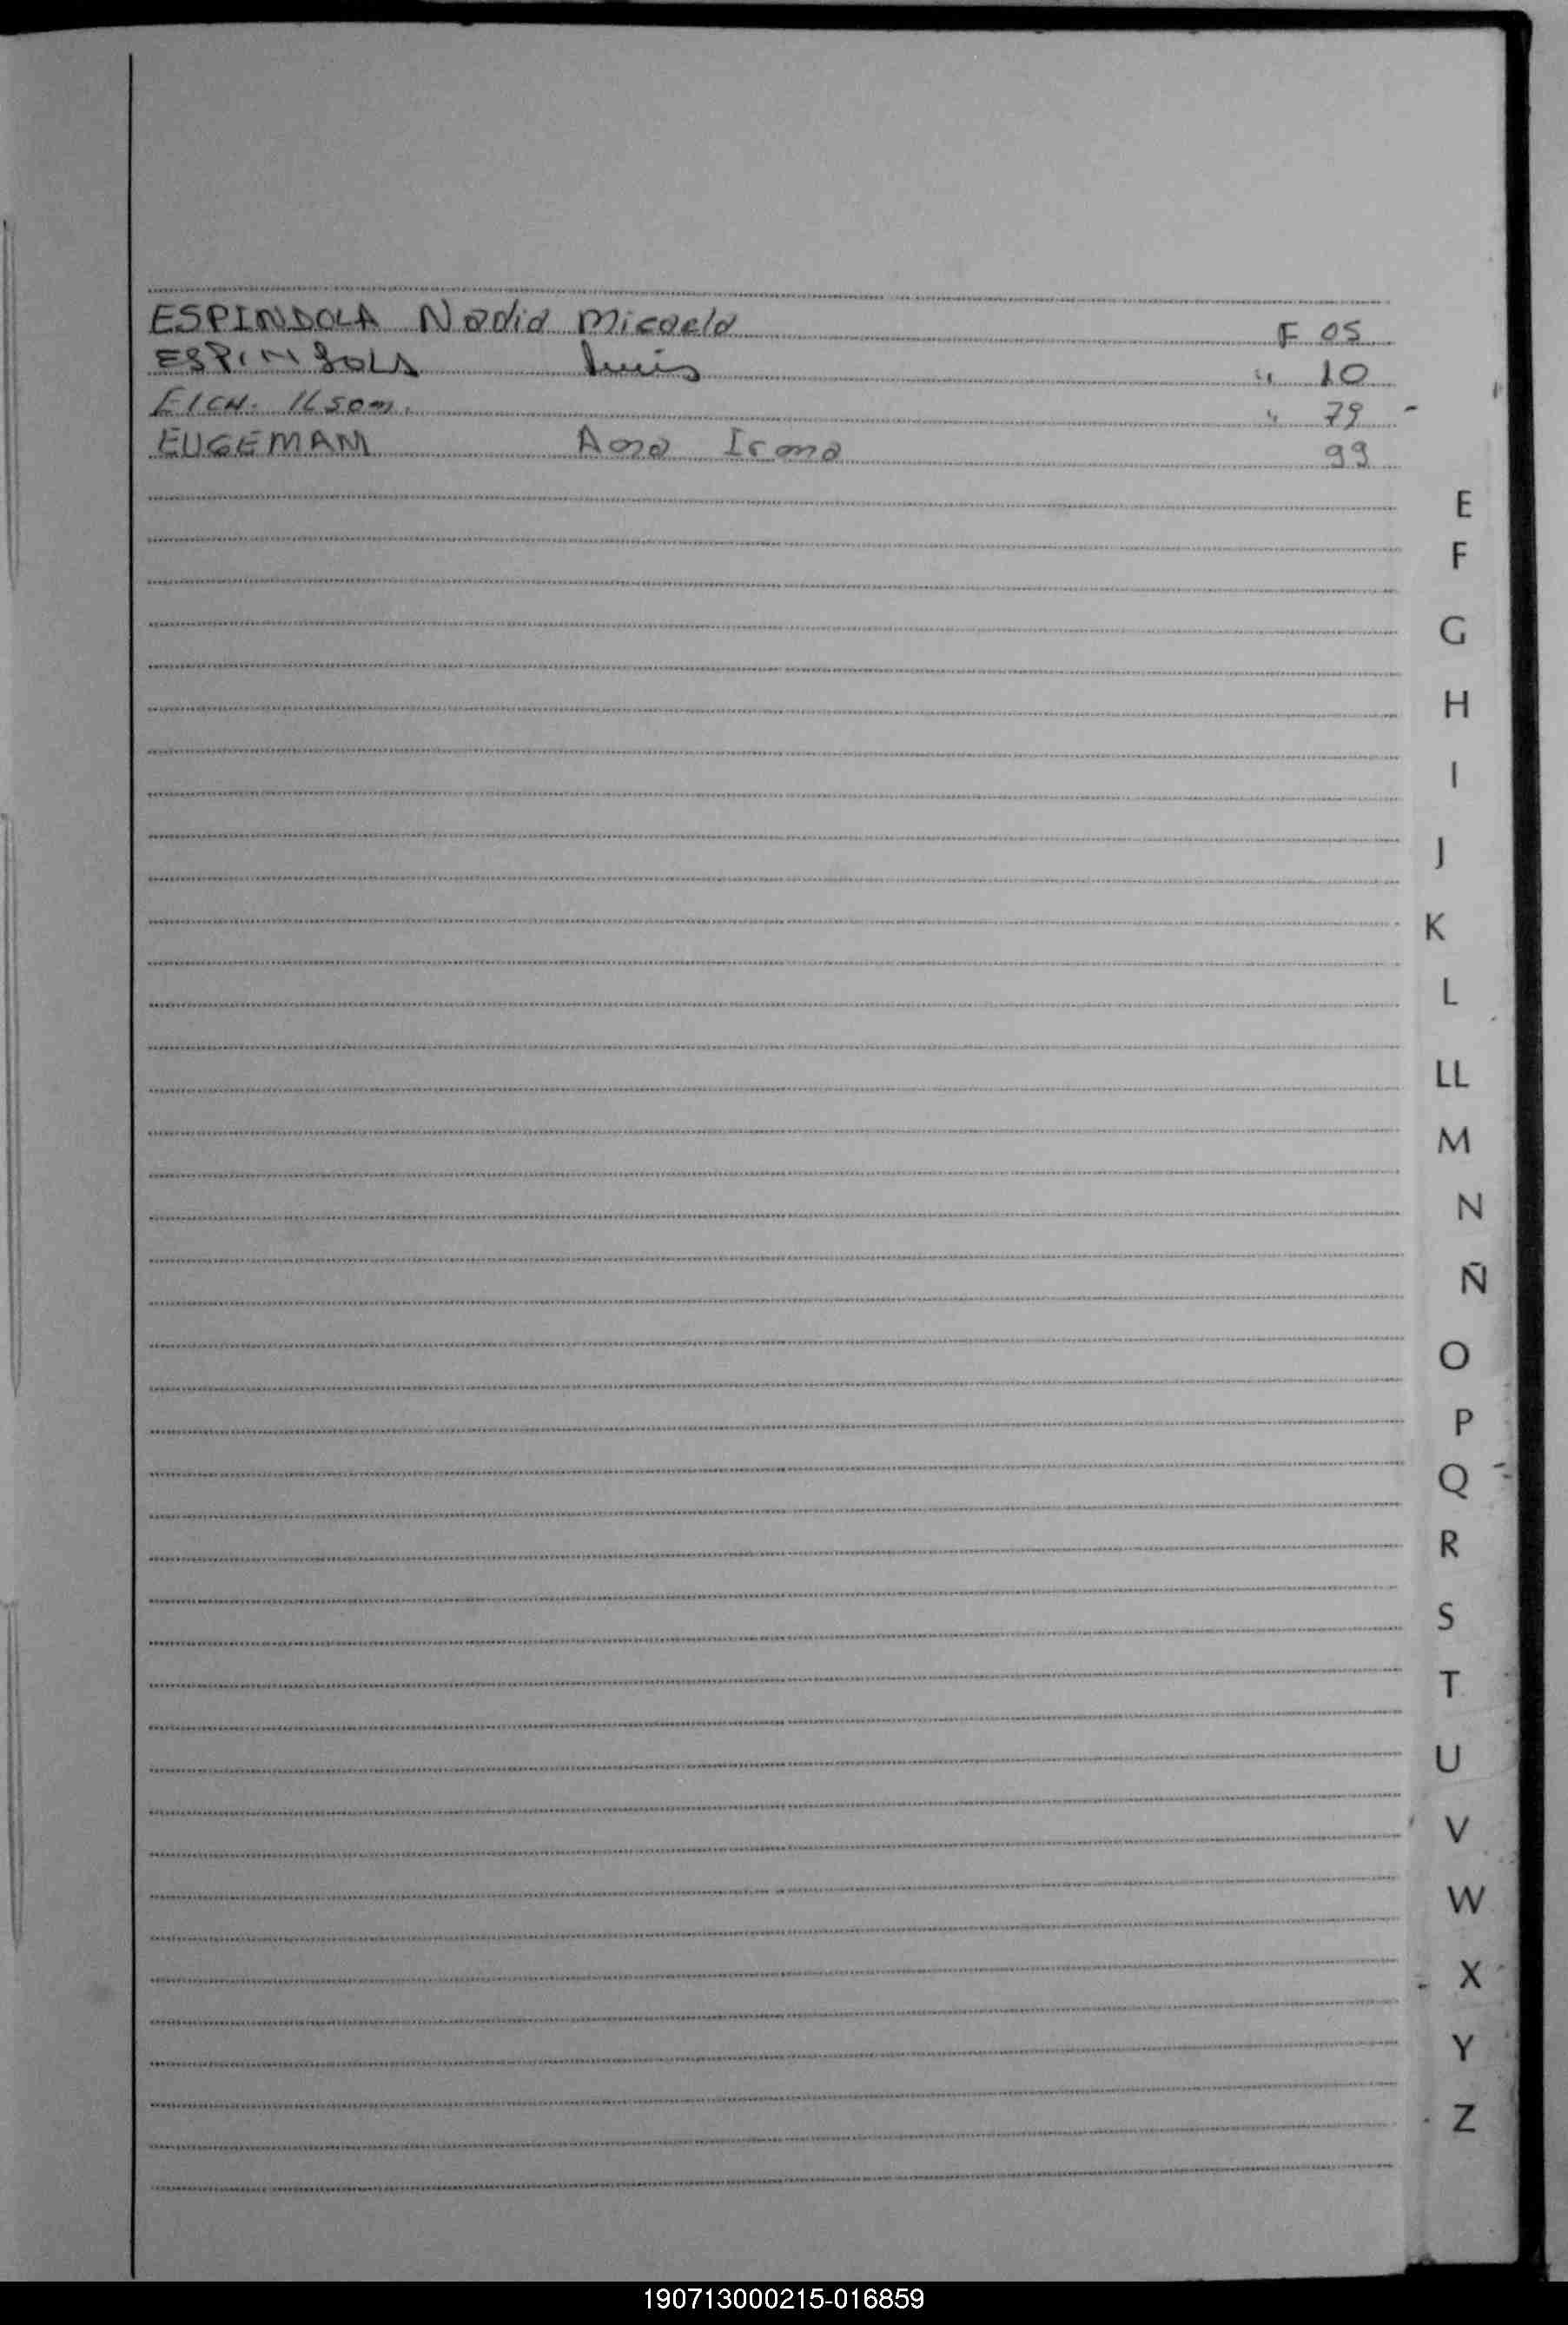 ESPINDOLA Nadia Micaela F 05
ESPINDOLA Luis " 10
EICH. Ilson. " 79 -
EUGEMAM Ana Irma 99
E
F
G
H
I
J
K
L
LL
M
N
Ñ
O
P
Q
R
S
T
U
V
W
X
Y
Z
190713000215-016859